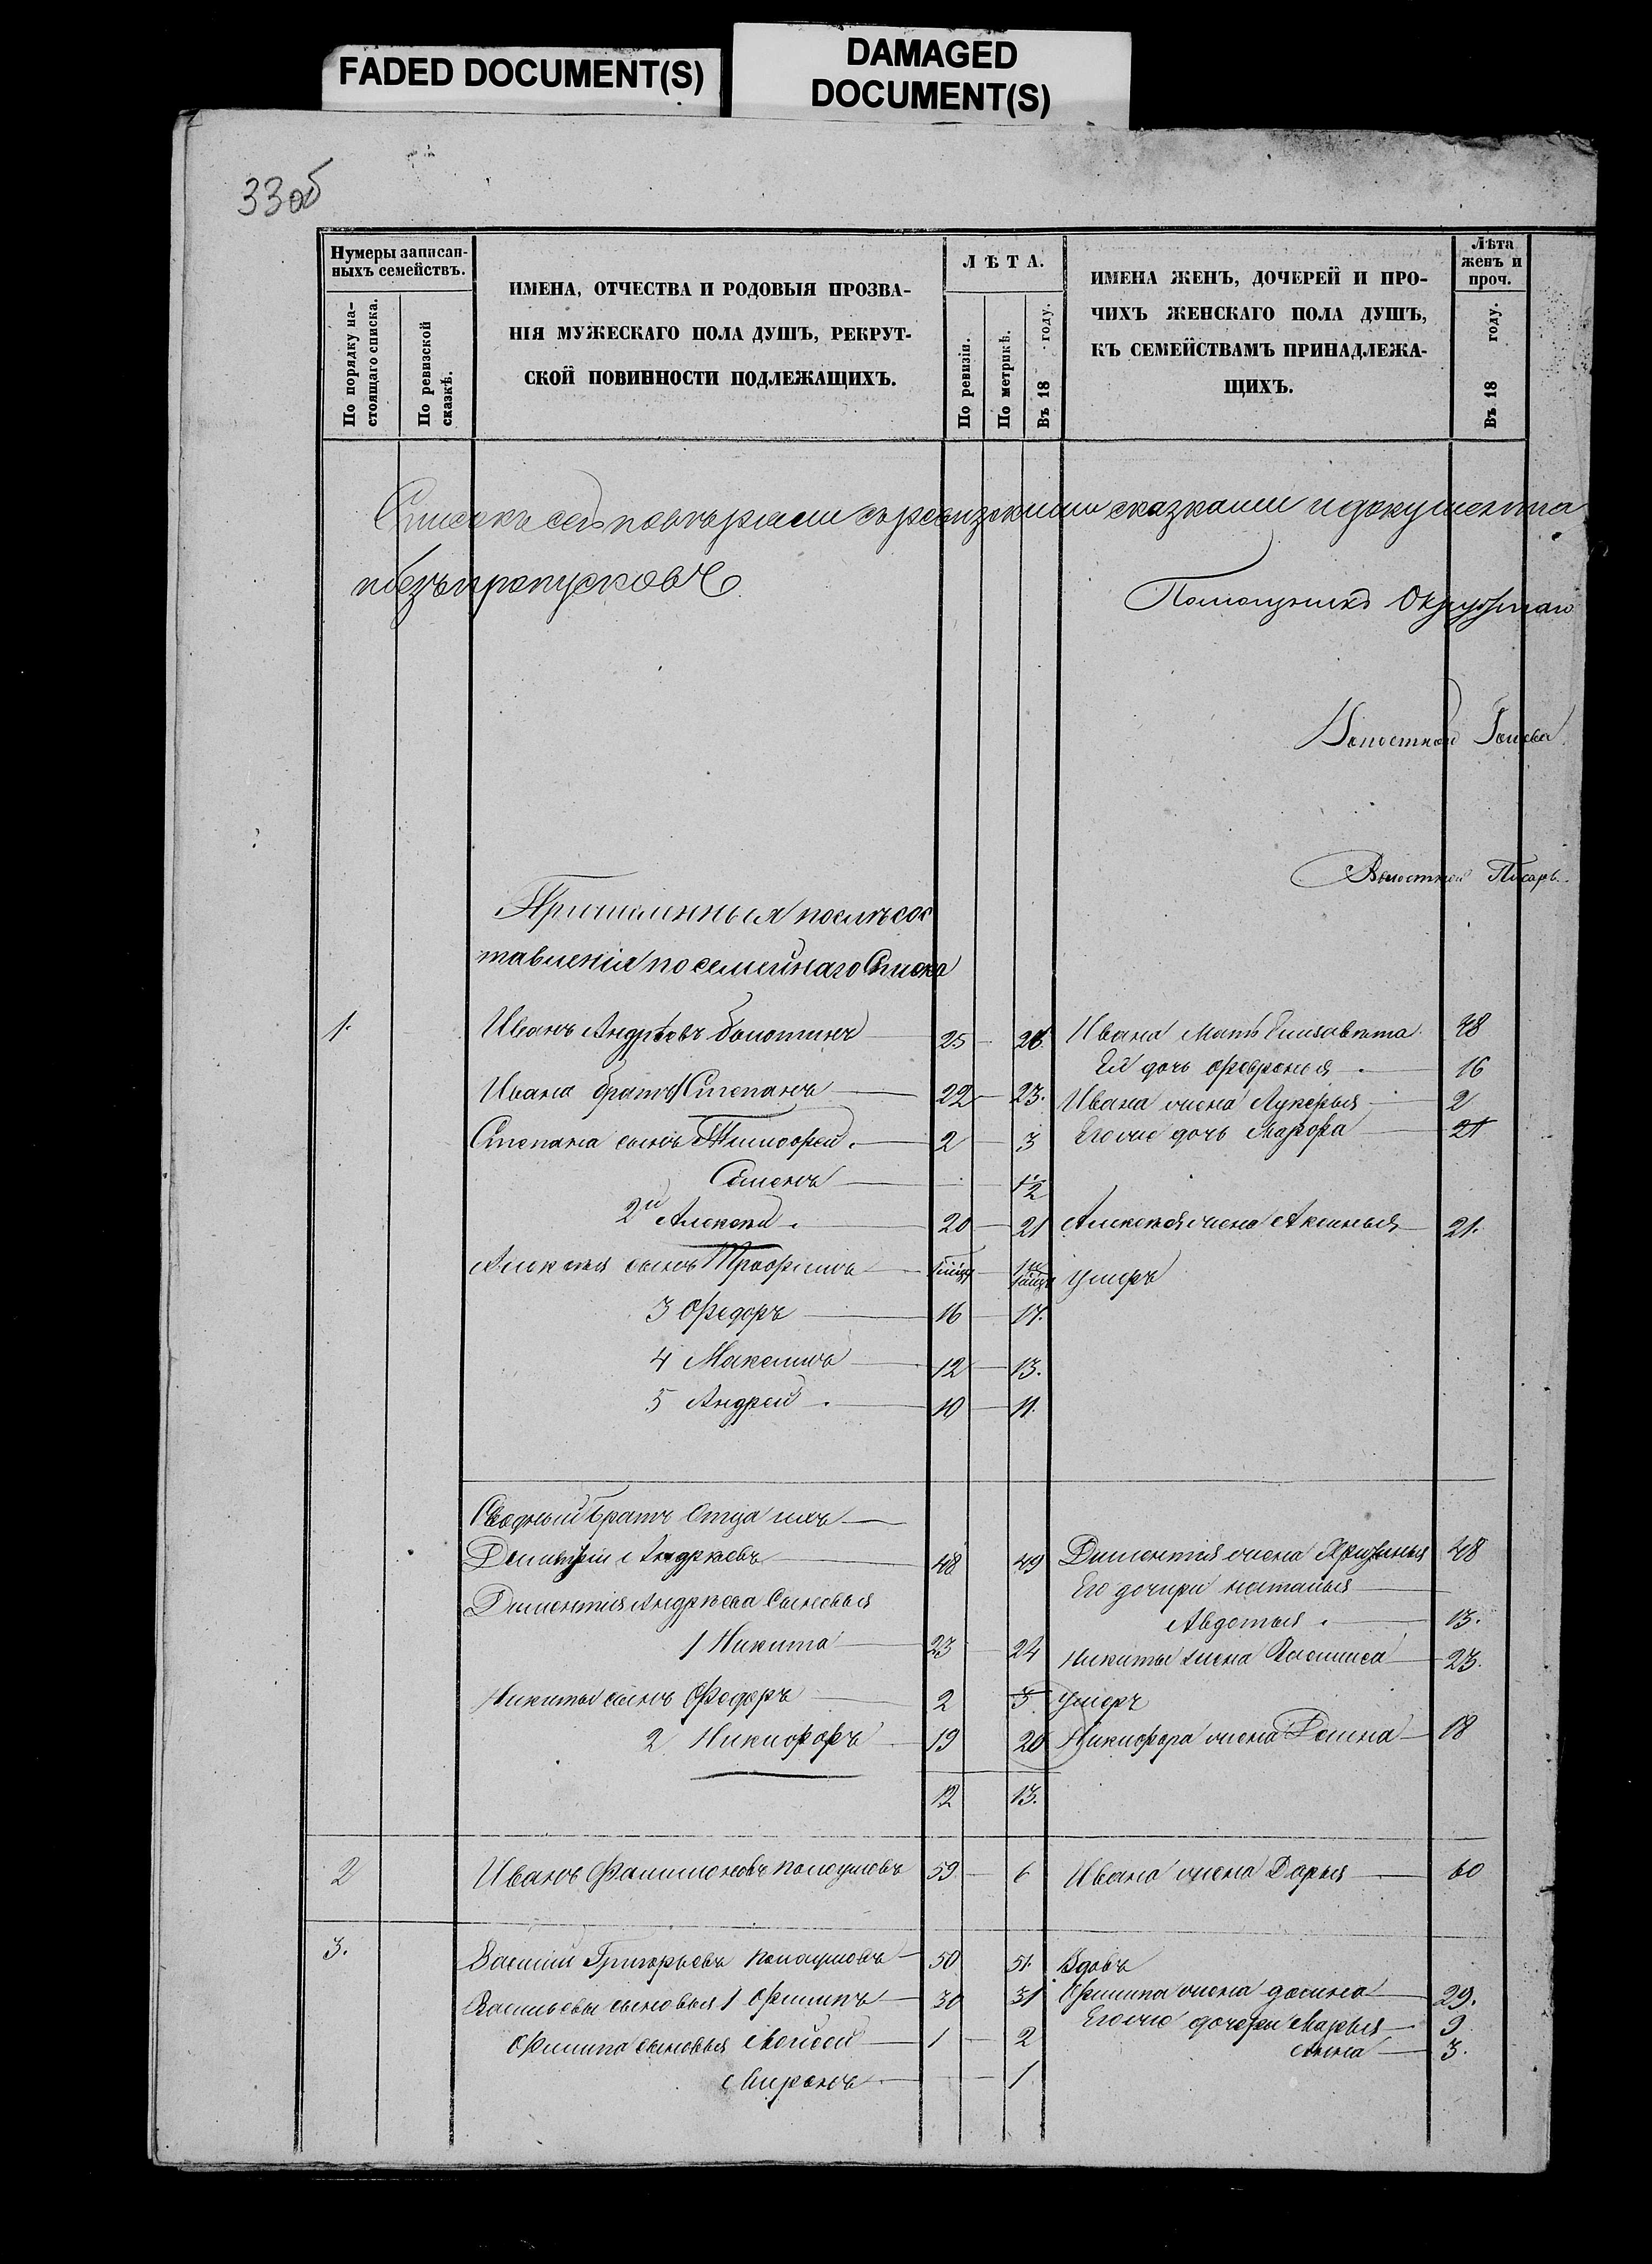 FADED DOCUMENT(S)
DAMAGED
DOCUMENT(S)
33 об
Нумеры записан-
ныхъ семействъ.
По порядку на-
стоящаго списка.
По ревизской
сказкѣ.
ИМЕНА, ОТЧЕСТВА И РОДОВЫЯ ПРОЗВА-
НІЯ МУЖЕСКАГО ПОЛА ДУШЪ, РЕКРУТ-
СКОЙ ПОВИННОСТИ ПОДЛЕЖАЩИХЪ.
ЛѢТА.
По ревизіи.
По метрикѣ.
Въ 18 году.
ИМЕНА ЖЕНЪ, ДОЧЕРЕЙ И ПРО-
ЧИХЪ ЖЕНСКАГО ПОЛА ДУШЪ,
КЪ СЕМЕЙСТВАМЪ ПРИНАДЛЕЖА-
ЩИХЪ.
Лѣта
женъ и
проч.
Въ 18 году.
Списокъ сей повѣряли съ ревизскими сказками и документа
безъ пропусковъ
Помощникъ Окружнаго
Волостной Голова
Волостной Писарь
Причисленныя послѣ сос
тавленія посемейнаго Списка
1. Иванъ Андрѣевъ Болотинъ 25 26. Ивана Мать Елизавѣта 48
Ей дочь Февронья 16
Ивана братъ Степанъ 22 23. Ивана жена Лукерья 2
Степана сынъ Тимофей 2 3 Его же дочь Марфа 21
Семенъ 1/2
2й Алексѣй 20 21 Алексѣя жена Аксинья 21.
Алексѣя сынъ Трофимъ умеръ
3 Федоръ 16 17.
4 Максимъ 12 13.
5 Андрей 10 11.
Сводный братъ Отца ихъ
Дементій Андрѣевъ 48 49 Дементія жена 48
Его дочери Наталья
Дементія Андрѣева Сыновья
Авдотья 13.
1 Никита 23 24 Никиты жена Василиса 23.
Никиты сынъ Федоръ 2 3 умеръ
2 Никифоръ 19 20 Никифора жена Домна 18
12 13.
2 Иванъ Филимоновъ 59 6 Ивана жена Дарья 60
3. Василій Григорьевъ 50 51. Вдовъ
Васильевы сыновья 1 Филипъ 30 31 Филипа жена 29.
Его же дочери Марья 9
Филипа сыновья Мойсей 1 2
Анна 3.
Миронъ 1